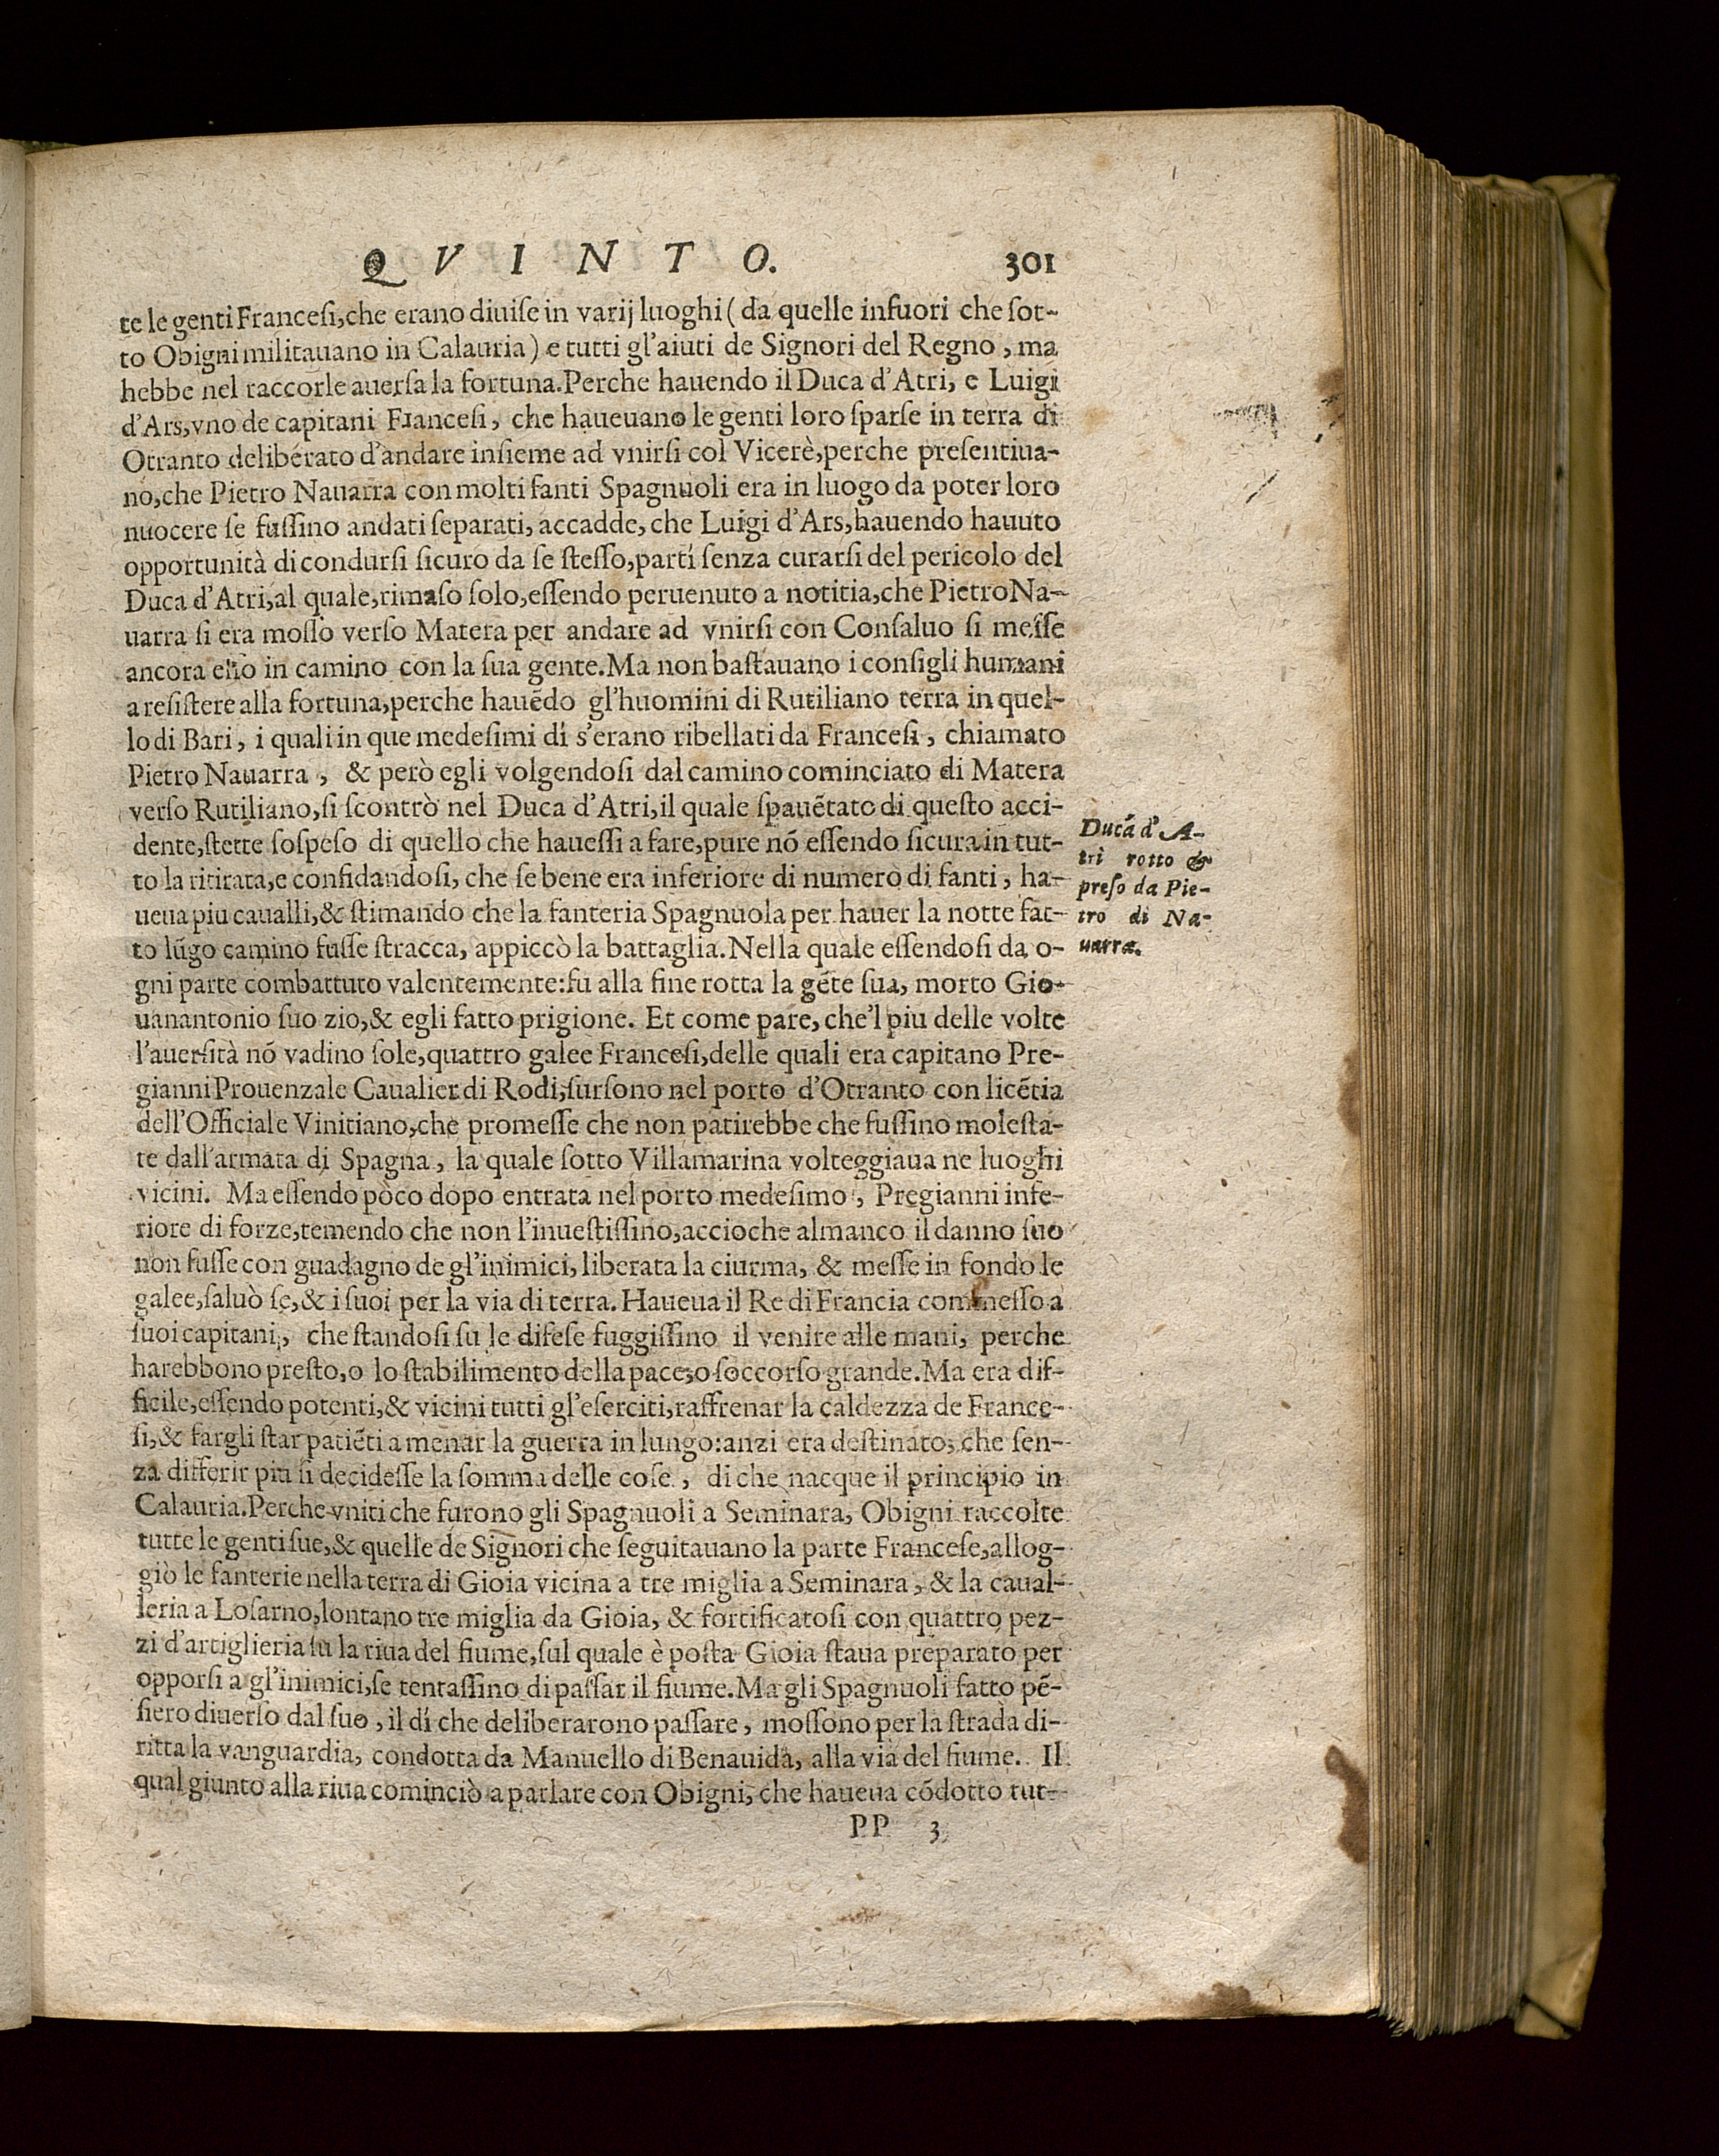 QVINTO. 301
te le genti Franceſi, che erano diuiſe in varij luoghi ( da quelle infuori che ſot-
to Obigni militauano in Calauria) e tutti gl'aiuti de Signori del Regno, ma
hebbe nel raccorle auerſa la fortuna. Perche hauendo il Duca d'Atri, e Luigi
d'Ars, vno de capitani Franceſi, che haueuano le genti loro ſparſe in terra di
Otranto deliberato d'andare inſieme ad vnirſi col Vicerè, perche preſentiua-
no, che Pietro Nauarra con molti fanti Spagnuoli era in luogo da poter loro
nuocere ſe fuſſino andati ſeparati, accadde, che Luigi d'Ars, hauendo hauuto
opportunità di condurſi ſicuro da ſe ſteſſo, partí ſenza curarſi del pericolo del
Duca d'Atri, al quale, rimaſo ſolo, eſſendo peruenuto a notitia, che Pietro Na-
uarra ſi era moſſo verſo Matera per andare ad vnirſi con Conſaluo ſi meſſe
ancora eſſo in camino con la ſua gente. Ma non baſtauano i conſigli humani
a reſiſtere alla fortuna, perche hauēdo gl'huomini di Rutiliano terra in quel-
lo di Bari, i quali in que medeſimi dí s'erano ribellati da Franceſi, chiamato
Pietro Nauarra, & però egli volgendoſi dal camino cominciato di Matera
verſo Rutiliano, ſi ſcontrò nel Duca d'Atri, il quale ſpauētato di queſto acci-
dente, ſtette ſoſpeſo di quello che haueſſi a fare, pure nō eſſendo ſicura in tut-
to la ritirata, e confidandoſi, che ſe bene era inferiore di numero di fanti, ha-
ueua piu caualli, & ſtimando che la fanteria Spagnuola per hauer la notte fat-
to lūgo camino fuſſe ſtracca, appiccò la battaglia. Nella quale eſſendoſi da o-
gni parte combattuto valentemente: fu alla fine rotta la gēte ſua, morto Gio-
uanantonio ſuo zio, & egli fatto prigione. Et come pare, che'l piu delle volte
l'auerſità nō vadino ſole, quattro galee Franceſi, delle quali era capitano Pre-
gianni Prouenzale Caualier di Rodi, ſurſono nel porto d'Otranto con licētia
dell'Officiale Vinitiano, che promeſſe che non patirebbe che fuſſino moleſta-
te dall'armata di Spagna, la quale ſotto Villamarina volteggiaua ne luoghi
vicini. Ma eſſendo poco dopo entrata nel porto medeſimo, Pregianni infe-
riore di forze, temendo che non l'inueſtiſſino, accioche almanco il danno ſuo
non fuſſe con guadagno de gl'inimici, liberata la ciurma, & meſſe in fondo le
galee, ſaluò ſe, & i ſuoi per la via di terra. Haueua il Re di Francia commeſſo a
ſuoi capitani, che ſtandoſi ſu le difeſe fuggiſſino il venire alle mani, perche
harebbono preſto, o lo ſtabilimento della pace, o ſoccorſo grande. Ma era dif-
ficile, eſſendo potenti, & vicini tutti gl'eſerciti, raffrenar la caldezza de France-
ſi, & fargli ſtar patiēti a menar la guerra in lungo: anzi era deſtinato, che ſen-
za differir piu ſi decideſſe la ſomma delle coſe, di che nacque il principio in
Calauria. Perche vniti che furono gli Spagnuoli a Seminara, Obigni raccolte
tutte le genti ſue, & quelle de Signori che ſeguitauano la parte Franceſe, allog-
giò le fanterie nella terra di Gioia vicina a tre miglia a Seminara, & la caual-
leria a Loſarno, lontano tre miglia da Gioia, & fortificatoſi con quattro pez-
zi d'artiglieria ſu la riua del fiume, ſul quale è poſta Gioia ſtaua preparato per
opporſi a gl'inimici, ſe tentaſſino di paſſar il fiume. Ma gli Spagnuoli fatto pē-
ſiero diuerſo dal ſuo, il dí che deliberarono paſſare, moſſono per la ſtrada di-
ritta la vanguardia, condotta da Manuello di Benauida, alla via del fiume. Il
qual giunto alla riua cominciò a parlare con Obigni, che haueua cōdotto tut-
PP 3
Duca d'A-
tri rotto &
preſo da Pie-
tro di Na-
uarra.